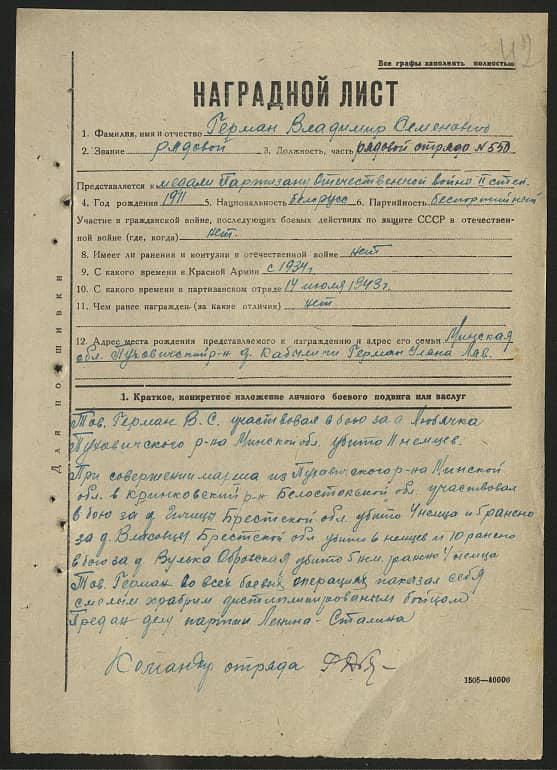 42
Все графы заполнять полностью
НАГРАДНОЙ ЛИСТ
1. Фамилия, имя и отчество Герман Владимир Семенович
2. Звание рядовой 3. Должность, часть рядовой отряда № 550
Представляется к медали Партизану Отечественной войны II степ.
4. Год рождения 1911 5. Национальность белорусс 6. Партийность беспартийный
Участие в гражданской войне, последующих боевых действиях по защите СССР в отечествен-
ной войне (где, когда) нет.
8. Имеет ли ранения и контузии в отечественной войне нет
9. С какого времени в Красной Армии с 1934 г
10. С какого времени в партизанском отряде 14 июля 1943 г.
11. Чем ранее награжден (за какие отличия) нет
12. Адрес места рождения представляемого к награждению и адрес его семьи Минская
обл. Пуховичский р-н д. Кабыличи Герман Уляна
Для подшивки
1. Краткое, конкретное изложение личного боевого подвига или заслуг
Тов. Герман В. С. участвовал в бою за д
Пуховичского р-на Минской обл. убито 11 немцев.
При совершении марша из Пуховичского р-на Минской
обл. в Кринковский р-н Белостокской обл. участвовал
в бою за д. Гичицы Брестской обл. убито 4 немца и 5 ранено
за д. Брестской обл убито 6 немцев и 10 ранено
в бою за д. Вулька Обровская убито 5 нем. ранено 4 немца
Тов. Герман во всех боевых операциях показал себя
смелым храбрим дистиплинированым бойцом.
Предан делу партии Ленина-Сталина
Командир отряда
1505—40000